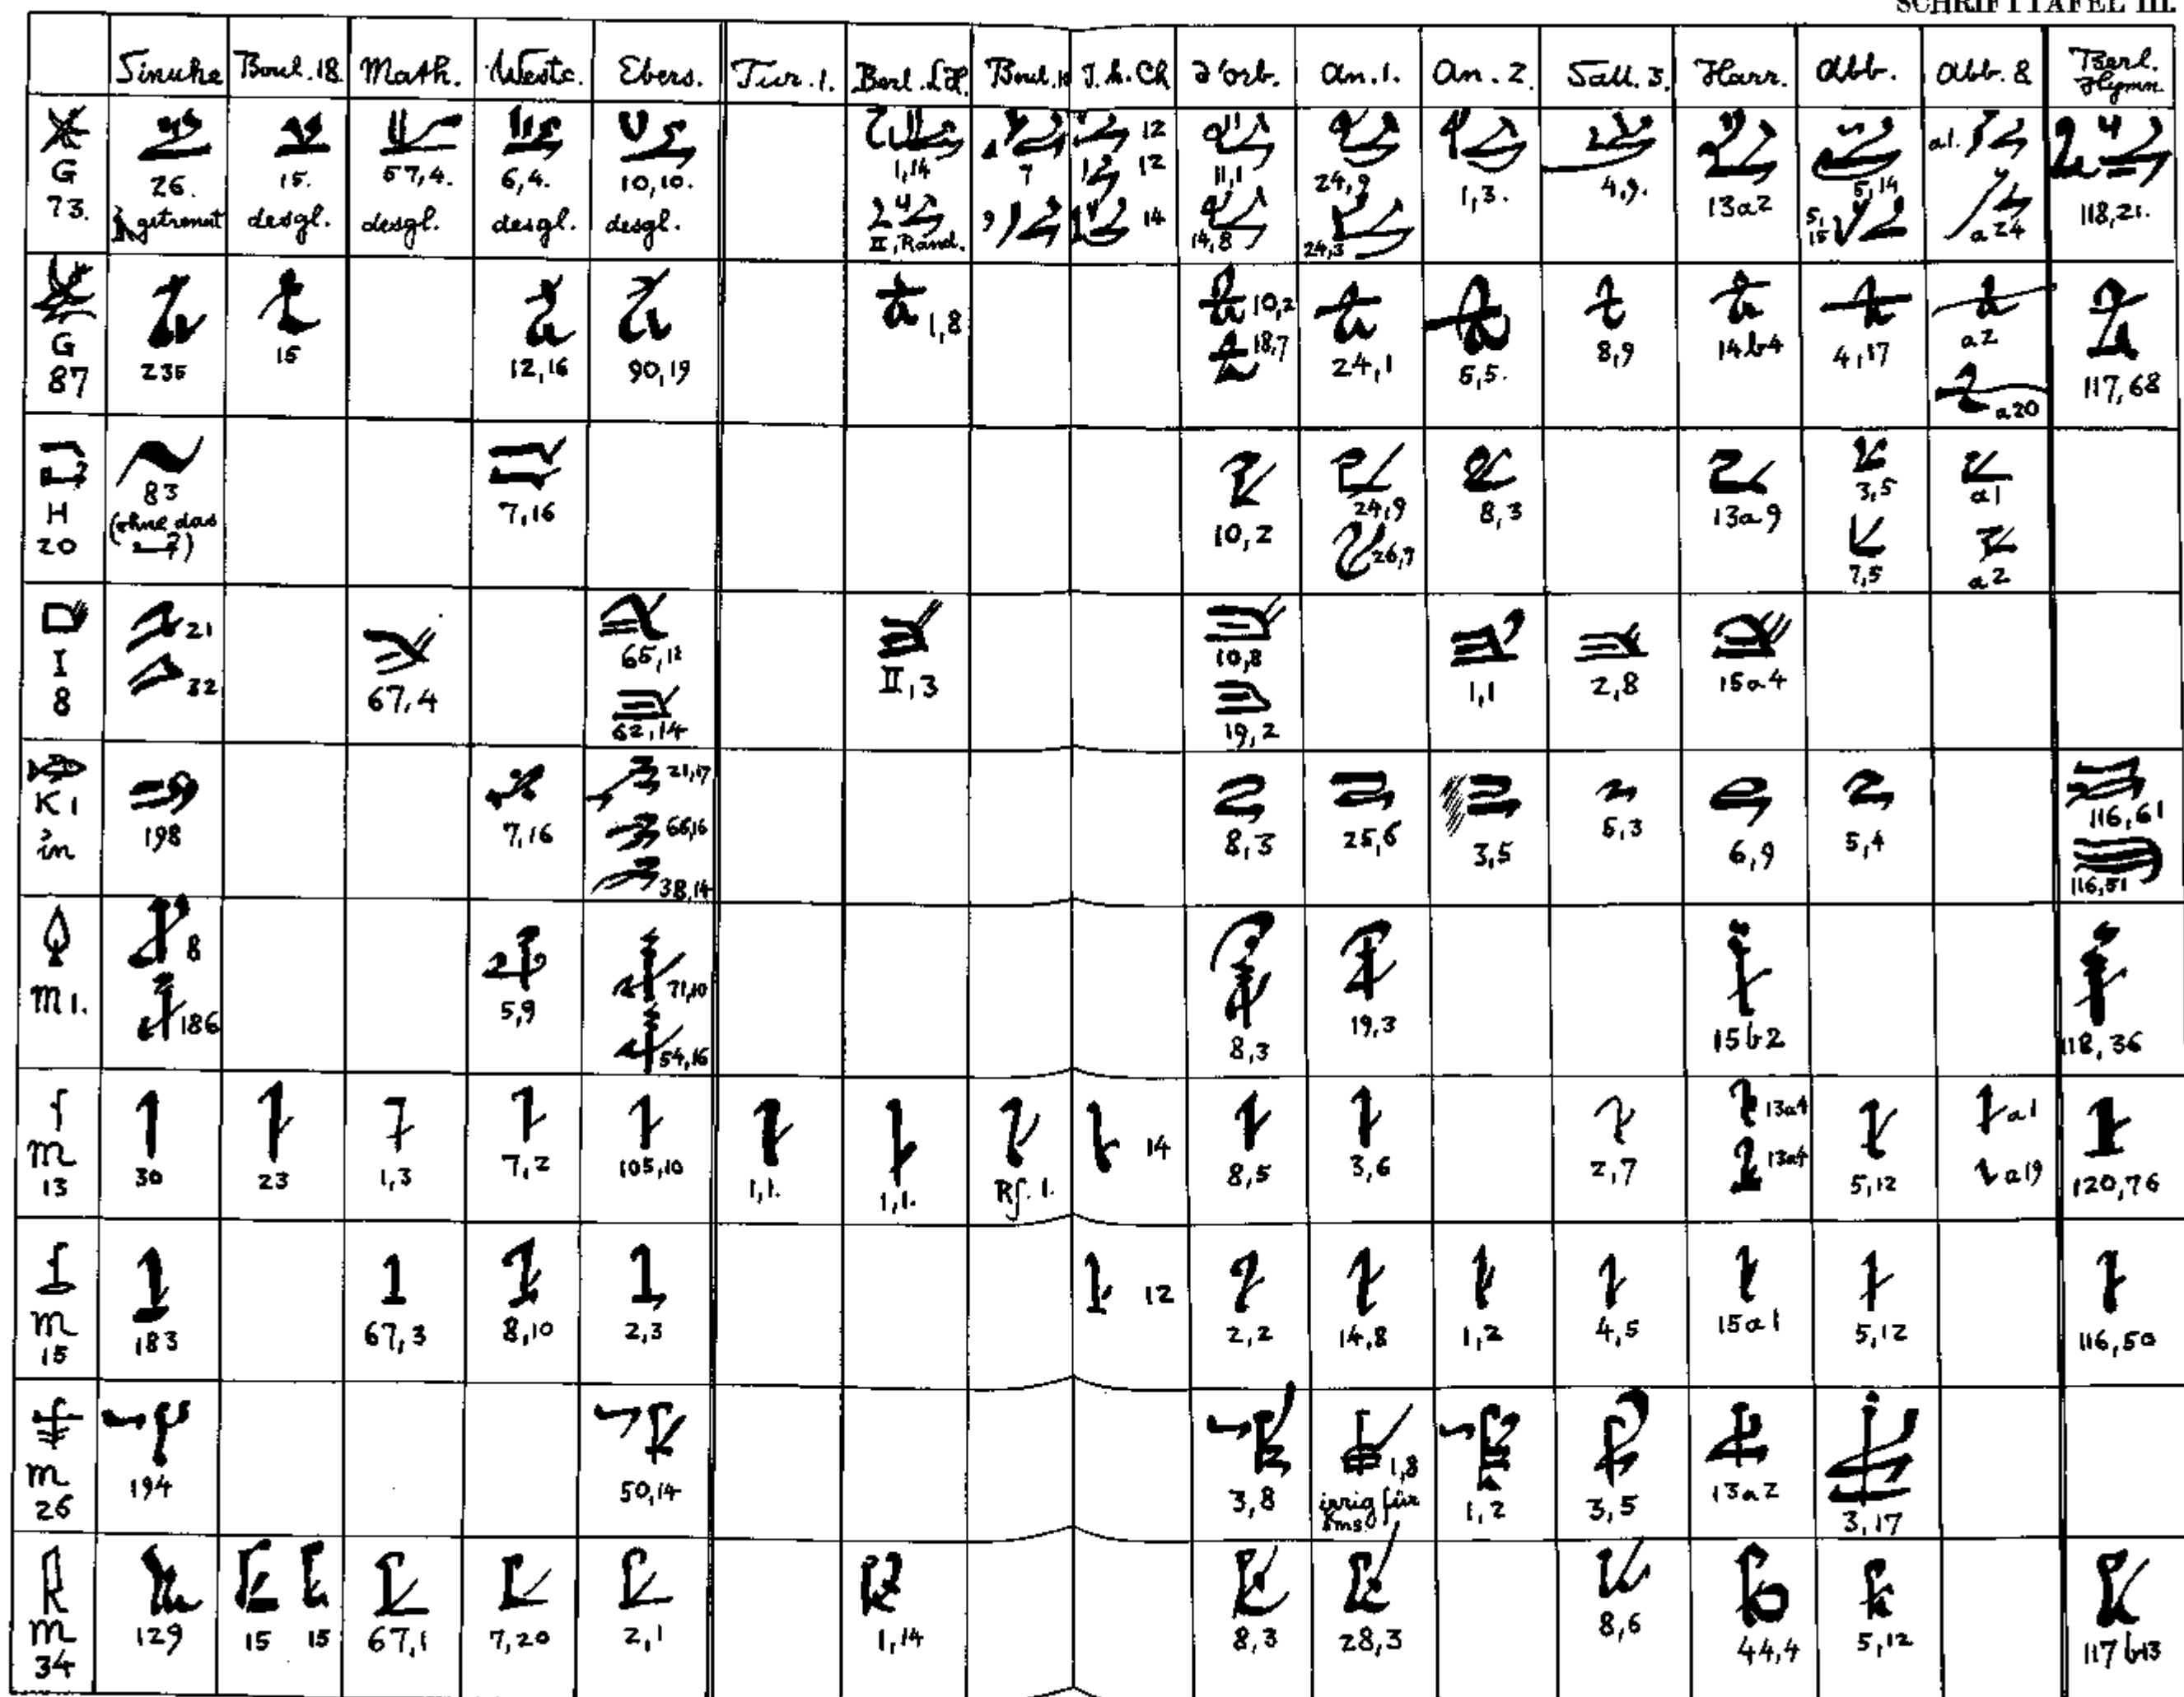 SCHRIFTTAFEL III.
Sinuhe Boul. 18 Math. Westc. Ebers. Tur. 1. Berl. L.H. Boul. 10 J. h. Ch d'orb. An. 1. An. 2. Sall. 3. Harr. Abb. Abb. 8 Berl. Hymn
G 73.
26. getrennt
15. desgl.
57,4. desgl.
6,4. desgl.
10,10. desgl.
1,14 II, Rand.
7 9
12 12 14
11,1 14,8
24,9 24,3
1,3.
4,9.
13a2
5,14 5,15
a1. a24
118,21.
G 87
235
15
12,16
90,19
1,8
10,2 18,7
24,1
5,5.
8,9
14b4
4,17
a2 a20
117,68
H 20
83 (ohne das ?)
7,16
10,2
24,9 26,7
8,3
13a9
3,5 7,5
a1 a2
I 8
21 32
67,4
65,12 62,14
II,3
10,8 19,2
1,1
2,8
15a4
K1 in
198
7,16
21,17 66,16 38,14
8,3
25,6
3,5
5,3
6,9
5,4
116,61 116,51
M1.
8 186
5,9
71,10 54,16
8,3
19,3
15b2
118,36
M 13
30
23
1,3
7,2
105,10
1,1.
1,1.
Rs. 1.
14
8,5
3,6
2,7
13a4 13a4
5,12
a1 a19
120,76
M 15
183
67,3
8,10
2,3
12
2,2
14,8
1,2
4,5
15a1
5,12
116,50
M 26
194
50,14
3,8
1,8 irrig für šms.
1,2
3,5
13a2
3,17
M 34
129
15 15
67,1
7,20
2,1
1,14
8,3
28,3
8,6
44,4
5,12
117b13